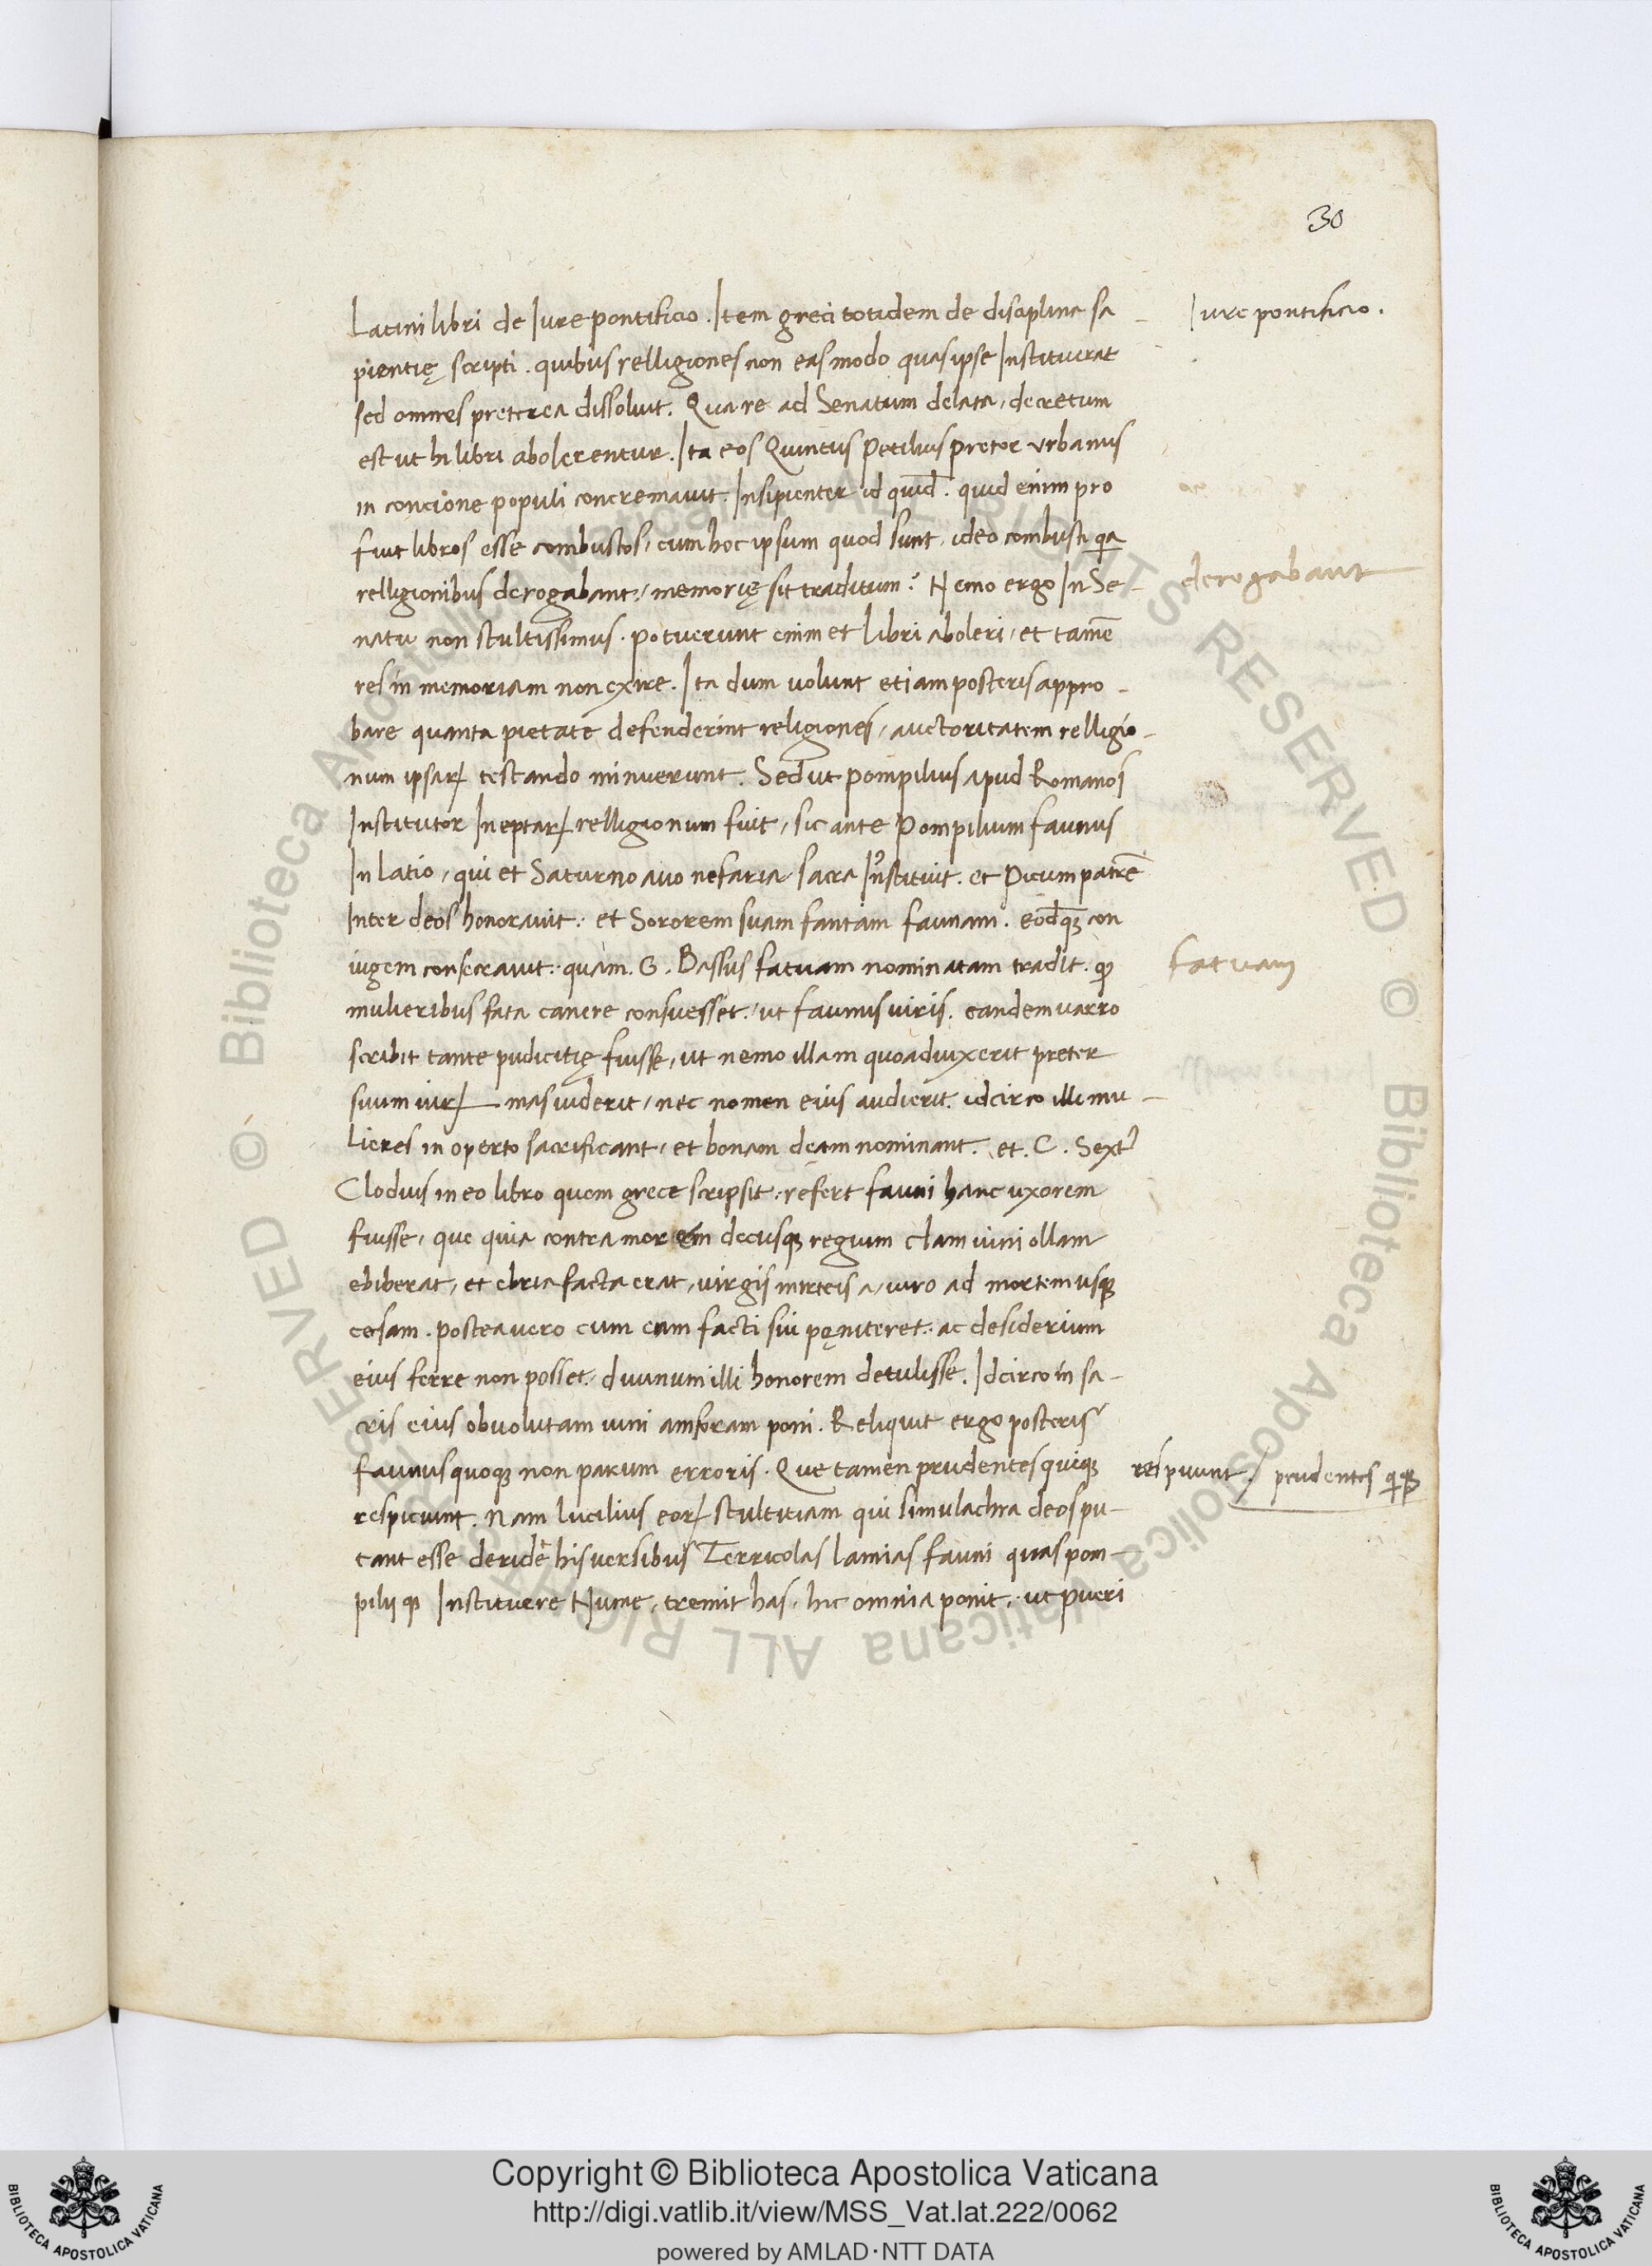 30
Latini libri de Iure pontificio. Item greci totidem de disciplina sa
Iure pontificio.
pientię scripti. quibus relligiones non eas modo quas ipse Instituerat
sed omnes preterea dissoluit. Qua re ad Senatum delata, decretum
est ut hi libri abolerentur. Ita eos Quintus Petilius pretor urbanus
in concione populi concremauit. Insipienter id quid̄. quid enim pro
fuit libros esse combustos, cum hoc ipsum quod sunt, ideo combusti qa
relligionibus derogabant, memorię sit traditum? Nemo ergo In Se-
derogabant
natu non stultissimus. potuerunt enim et libri aboleri, et tamē
res in memoriam non exire. Ita dum uolunt etiam posteris appro-
bare quanta pietate defenderint religiones, auctoritatem relligio-
num ipsaꝝ testando minuerunt. Sed ut pompilius apud Romanos
Institutor Ineptaꝝ relligionum fuit, sic ante Pompilium faunus
In latio, qui et Saturno auo nefaria sacra Instituit. et Picum patrē
Inter deos honorauit: et Sororem suam fantam faunam. eodq̄ con
iugem consecrauit: quam. G. Bassus fatuam nominatam tradit. ꝙ
fatuam
mulieribus fata canere consuesset, ut faunus uiris. eandem uarro
scribit tante pudicitię fuisse, ut nemo illam quoad uixerit preter
suum uiꝝ mas uiderit, nec nomen eius audierit. idcirco illi mu-
lieres in operto sacrificant, et bonam deam nominant. et. C. Sext
Clodius in eo libro quem grece scripsit: refert fauni hanc uxorem
fuisse, que quia contra morem decusqꝫ regium clam uini ollam
ebiberat, et ebria facta erat, uirgis mirteis a, uiro ad mortem usqꝫ
cesam. postea uero cum eum facti sui pęniteret: ac desiderium
eius ferre non posset, diuinum illi honorem detulisse. Idcirco in sa-
cris eius obuolutam uini amforam poni. Reliquit ergo posteris
faunus quoqꝫ non parum erroris. Que tamen prudentes quiqꝫ
respuunt / prudentes qiqꝫ
respiciunt. Nam lucilius eoꝝ stultitiam qui simulachra deos pu-
tant esse deridē his uersibus Terricolas lamias fauni quas pom-
pilii qꝫ Instituere Nume, tremit has, hic omnia ponit, ut pueri
Copyright © Biblioteca Apostolica Vaticana
http://digi.vatlib.it/view/MSS_Vat.lat.222/0062
powered by AMLAD·NTT DATA
BIBLIOTECA APOSTOLICA VATICANA
BIBLIOTECA APOSTOLICA VATICANA
© Biblioteca Apostolica Vaticana ALL RIGHTS RESERVED
© Biblioteca Apostolica Vaticana ALL RIGHTS RESERVED